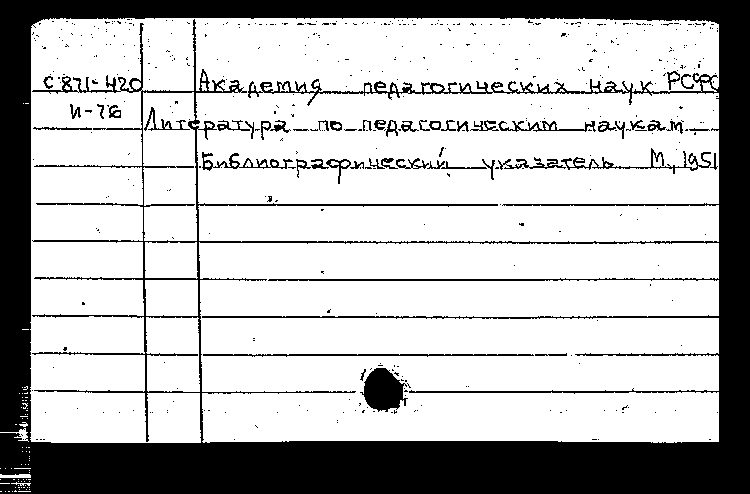 С871-420 Академия педагогических наук РСФС
И-76 Литература по педагогическим наукам.
Библиографический указатель М., 1951